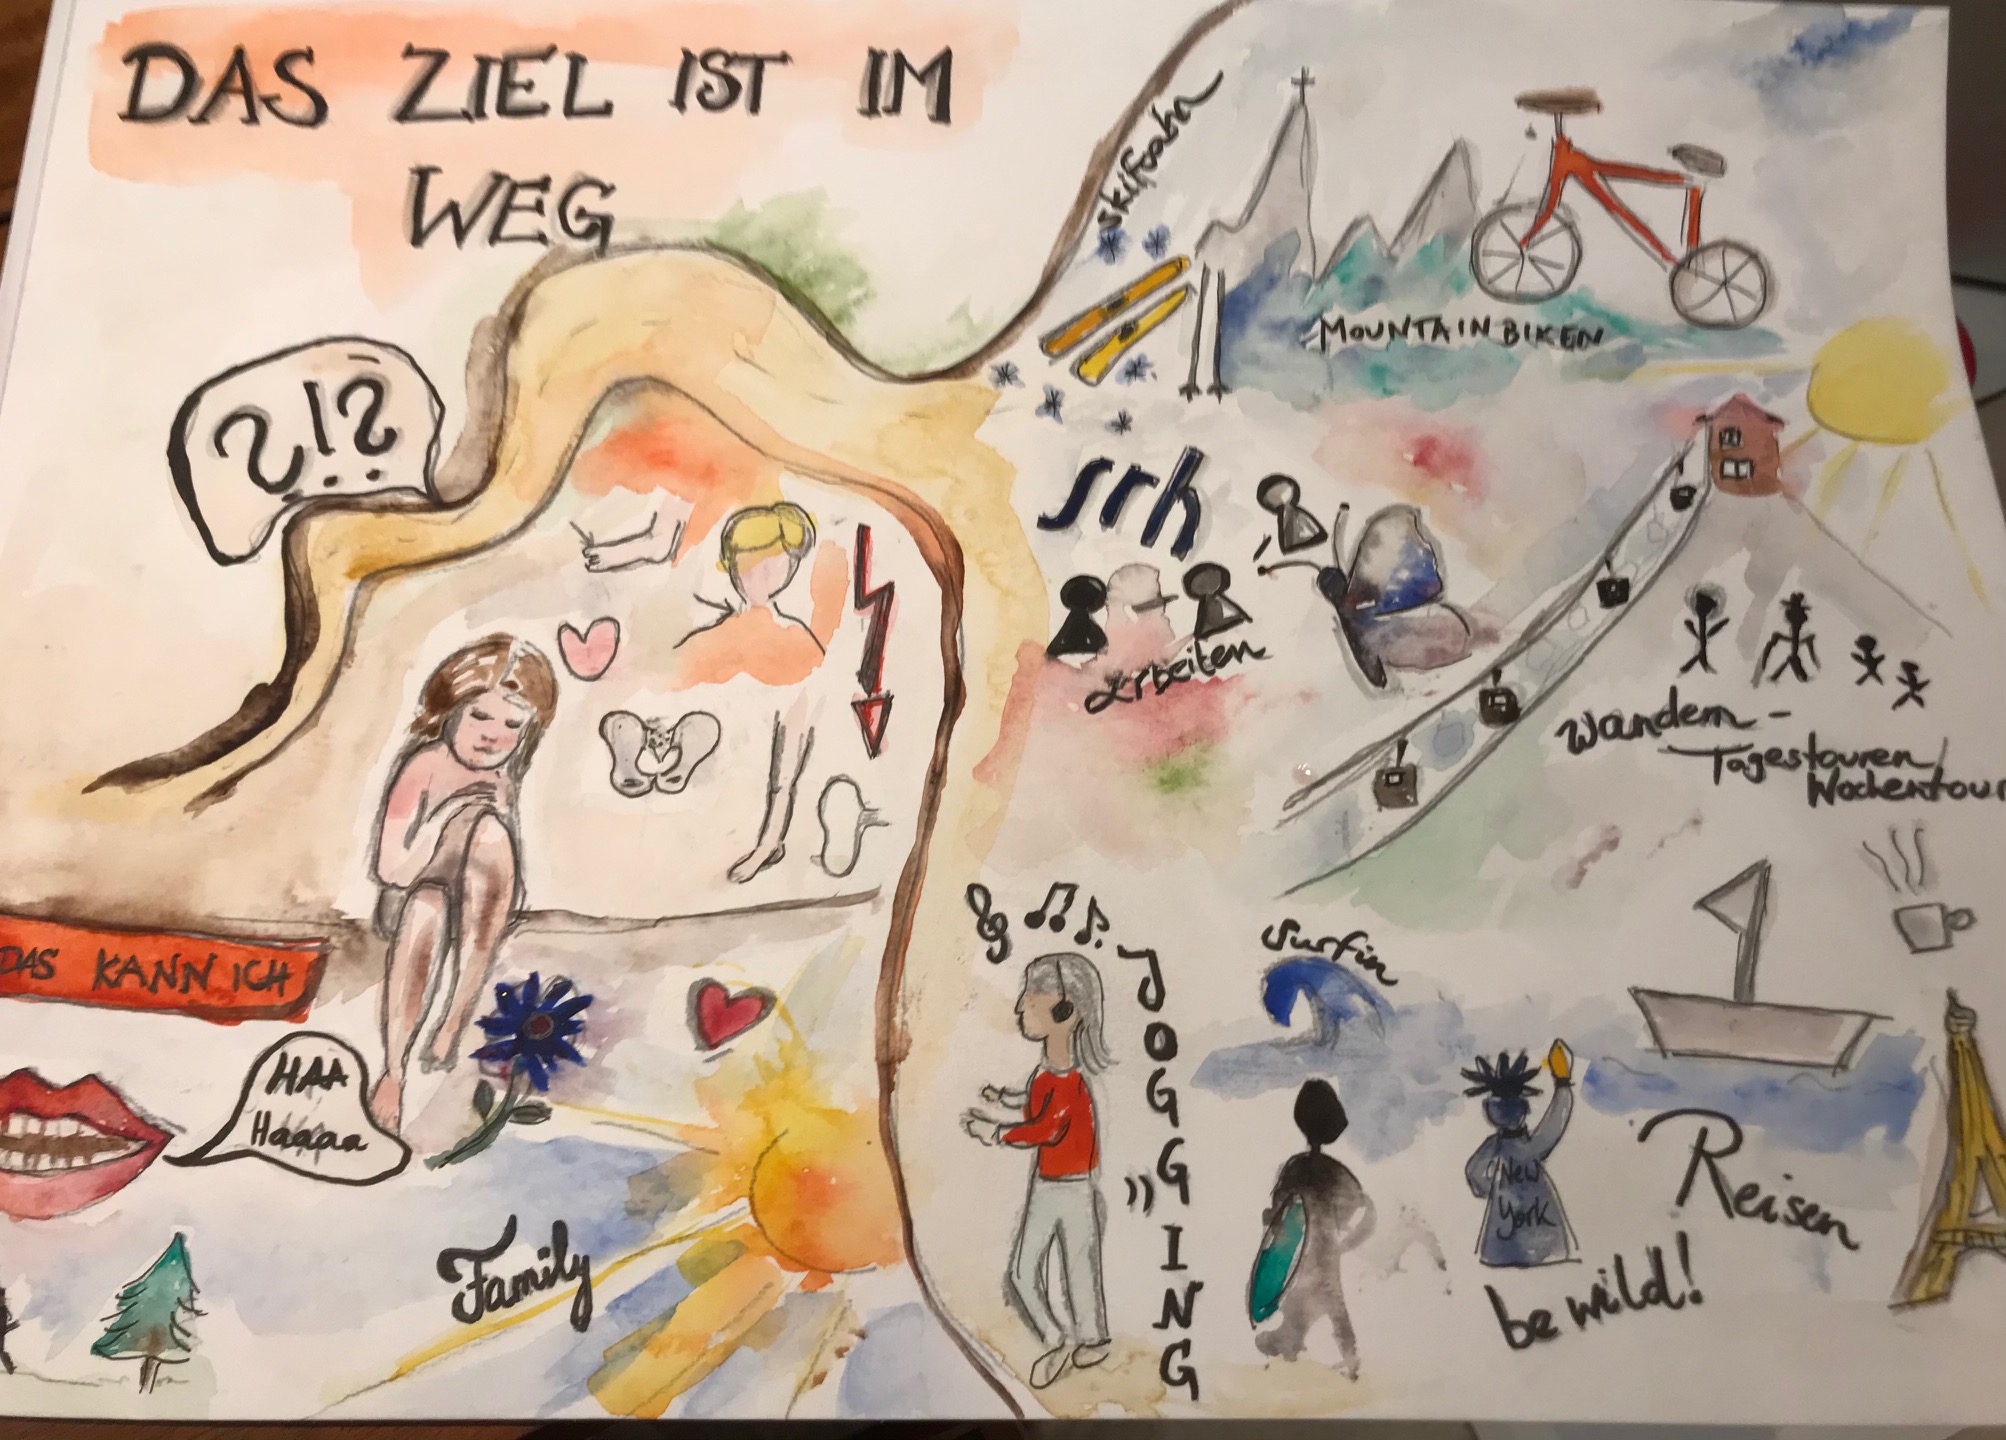 DAS ZIEL IST IM
WEG
?!?
skifoahn
MOUNTAINBIKEN
srh
arbeiten
Wandern -
Tagestouren/
Wochentour
DAS KANN ICH
HAA
Haaaa
Family
JOGGING
Surfin
New
York
Reisen
be wild!